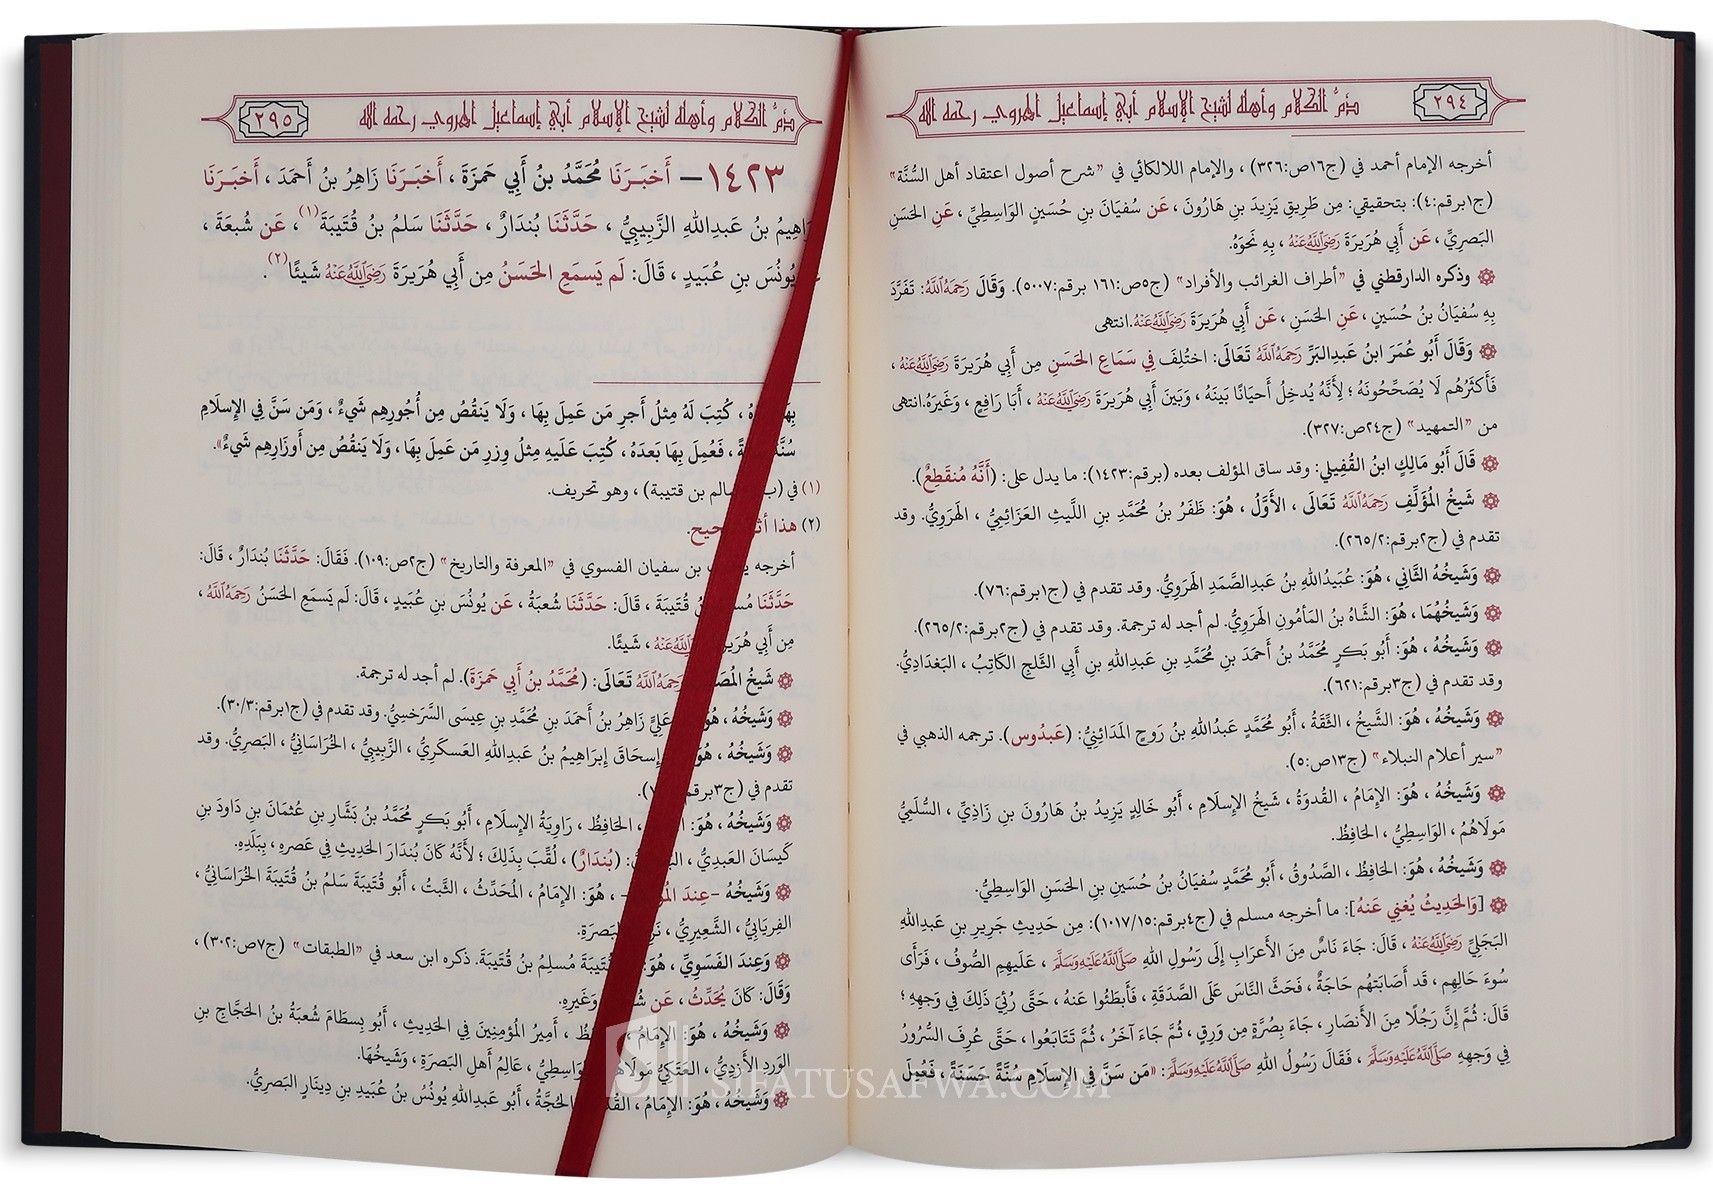 ٢٩٤
ذمُّ الكلام وأهله لشيخ الإسلام أبي إسماعيل الهروي رحمه الله
أخرجه الإمام أحمد في (ج١٦ص:٣٢٦) ، والإمام اللالكائي في "شرح أصول اعتقاد أهل السُّنَّة"
(ج١برقم:٤): بتحقيقي: مِن طَرِيقِ يَزِيدَ بنِ هَارُونَ ، عَن سُفيَانَ بنِ حُسَينٍ الوَاسِطِيِّ ، عَنِ الحَسَنِ
البَصرِيِّ ، عَن أَبِي هُرَيرَةَ رَضِيَاللَّهُعَنْهُ ، بِهِ نَحوَهُ.
وذكره الدارقطني في "أطراف الغرائب والأفراد" (ج٥ص:١٦١ برقم:٥٠٠٧). وَقَالَ رَحِمَهُاللَّهُ: تَفَرَّدَ
بِهِ سُفيَانُ بنُ حُسَينٍ ، عَنِ الحَسَنِ ، عَن أَبِي هُرَيرَةَ رَضِيَاللَّهُعَنْهُ.انتهى
وَقَالَ أَبُو عُمَرَ ابنُ عَبدِالبَرِّ رَحِمَهُاللَّهُ تَعَالَى: اختُلِفَ فِي سَمَاعِ الحَسَنِ مِن أَبِي هُرَيرَةَ رَضِيَاللَّهُعَنْهُ ،
فَأَكثَرُهُم لَا يُصَحِّحُونَهُ ؛ لِأَنَّهُ يُدخِلُ أَحيَانًا بَينَهُ ، وَبَينَ أَبِي هُرَيرَةَ رَضِيَاللَّهُعَنْهُ ، أَبَا رَافِعٍ ، وَغَيرَهُ.انتهى
من "التمهيد" (ج٢٤ص:٣٢٧).
قَالَ أَبُو مَالِكٍ ابنُ القُفِيلِي: وقد ساق المؤلف بعده (برقم:١٤٢٣): ما يدل على: (أَنَّهُ مُنقَطِعٌ).
شَيخُ المُؤَلِّفِ رَحِمَهُاللَّهُ تَعَالَى ، الأَوَّلُ ، هُوَ: ظَفَرُ بنُ مُحَمَّدِ بنِ اللَّيثِ العَزَائِمِيُّ ، الهَرَوِيُّ. وقد
تقدم في (ج٢برقم:٢٦٥/٢).
وَشَيخُهُ الثَّانِي ، هُوَ: عُبَيدُاللهِ بنُ عَبدِالصَّمَدِ الهَرَوِيُّ. وقد تقدم في (ج١برقم:٧٦).
وَشَيخُهُمَا ، هُوَ: الشَّاهُ بنُ المَأمُونِ الهَرَوِيُّ. لم أجد له ترجمة. وقد تقدم في (ج٢برقم:٢٦٥/٢).
وَشَيخُهُ ، هُوَ: أَبُو بَكرٍ مُحَمَّدُ بنُ أَحمَدَ بنِ مُحَمَّدِ بنِ عَبدِاللهِ بنِ أَبِي الثَّلجِ الكَاتِبُ ، البَغدَادِيُّ.
وقد تقدم في (ج٣برقم:٦٢١).
وَشَيخُهُ ، هُوَ: الشَّيخُ ، الثِّقَةُ ، أَبُو مُحَمَّدٍ عَبدُاللهِ بنُ رَوحٍ المَدَائِنِيُّ: (عَبدُوس). ترجمه الذهبي في
"سير أعلام النبلاء" (ج١٣ص:٥).
وَشَيخُهُ ، هُوَ: الإِمَامُ ، القُدوَةُ ، شَيخُ الإِسلَامِ ، أَبُو خَالِدٍ يَزِيدُ بنُ هَارُونَ بنِ زَاذِيِّ ، السُّلَمِيُّ
مَولَاهُمُ ، الوَاسِطِيُّ ، الحَافِظُ.
وَشَيخُهُ ، هُوَ: الحَافِظُ ، الصَّدُوقُ ، أَبُو مُحَمَّدٍ سُفيَانُ بنُ حُسَينِ بنِ الحَسَنِ الوَاسِطِيُّ.
[وَالحَدِيثُ يُغنِي عَنهُ]: ما أخرجه مسلم في (ج٤برقم:١٠١٧/١٥): مِن حَدِيثِ جَرِيرِ بنِ عَبدِاللهِ
البَجَلِيِّ رَضِيَاللَّهُعَنْهُ ، قَالَ: جَاءَ نَاسٌ مِنَ الأَعرَابِ إِلَى رَسُولِ اللهِ صَلَّىاللَّهُعَلَيْهِوَسَلَّمَ ، عَلَيهِمِ الصُّوفُ ، فَرَأَى
سُوءَ حَالِهِم ، قَد أَصَابَتهُم حَاجَةٌ ، فَحَثَّ النَّاسَ عَلَى الصَّدَقَةِ ، فَأَبطَئُوا عَنهُ ، حَتَّى رُئِيَ ذَلِكَ فِي وَجهِهِ ؛
قَالَ: ثُمَّ إِنَّ رَجُلًا مِنَ الأَنصَارِ ، جَاءَ بِصُرَّةٍ مِن وَرِقٍ ، ثُمَّ جَاءَ آخَرُ ، ثُمَّ تَتَابَعُوا ، حَتَّى عُرِفَ السُّرُورُ
فِي وَجهِهِ صَلَّىاللَّهُعَلَيْهِوَسَلَّمَ ، فَقَالَ رَسُولُ اللهِ صَلَّىاللَّهُعَلَيْهِوَسَلَّمَ: «مَن سَنَّ فِي الإِسلَامِ سُنَّةً حَسَنَةً ، فَعُمِلَ
ذمُّ الكلام وأهله لشيخ الإسلام أبي إسماعيل الهروي رحمه الله
٢٩٥
١٤٢٣– أَخبَرَنَا مُحَمَّدُ بنُ أَبِي حَمزَةَ ، أَخبَرَنَا زَاهِرُ بنُ أَحمَدَ ، أَخبَرَنَا
بنُ عَبدِاللهِ الزَّبِيبِيُّ ، حَدَّثَنَا بُندَارٌ ، حَدَّثَنَا سَلمُ بنُ قُتَيبَةَ(١) ، عَن شُعبَةَ ،
يُونُسَ بنِ عُبَيدٍ ، قَالَ: لَم يَسمَعِ الحَسَنُ مِن أَبِي هُرَيرَةَ رَضِيَاللَّهُعَنْهُ شَيئًا(٢).
كُتِبَ لَهُ مِثلُ أَجرِ مَن عَمِلَ بِهَا ، وَلَا يَنقُصُ مِن أُجُورِهِم شَيءٌ ، وَمَن سَنَّ فِي الإِسلَامِ
فَعُمِلَ بِهَا بَعدَهُ ، كُتِبَ عَلَيهِ مِثلُ وِزرِ مَن عَمِلَ بِهَا ، وَلَا يَنقُصُ مِن أَوزَارِهِم شَيءٌ».
(١) في بن قتيبة) ، وهو تحريف.
(٢) هذا
أخرجه بن سفيان الفسوي في "المعرفة والتاريخ" (ج٢ص:١٠٩). فَقَالَ: حَدَّثَنَا بُندَارٌ ، قَالَ:
حَدَّثَنَا قُتَيبَةَ ، قَالَ: حَدَّثَنَا شُعبَةُ ، عَن يُونُسَ بنِ عُبَيدٍ ، قَالَ: لَم يَسمَعِ الحَسَنُ رَحِمَهُاللَّهُ ،
مِن أَبِي ، شَيئًا.
شَيخُ رَحِمَهُاللَّهُ تَعَالَى: (مُحَمَّدُ بنُ أَبِي حَمزَةَ). لم أجد له ترجمة.
وَشَيخُهُ ، هُوَ: عَلِيٍّ زَاهِرُ بنُ أَحمَدَ بنِ مُحَمَّدِ بنِ عِيسَى السَّرَخسِيُّ. وقد تقدم في (ج١برقم:٣٠/٣).
وَشَيخُهُ ، هُوَ: إِسحَاقَ إِبرَاهِيمُ بنُ عَبدِاللهِ العَسكَرِيُّ ، الزَّبِيبِيُّ ، الخُرَاسَانِيُّ ، البَصرِيُّ. وقد
تقدم في (ج٣برقم
وَشَيخُهُ ، هُوَ: الحَافِظُ ، رَاوِيَةُ الإِسلَامِ ، أَبُو بَكرٍ مُحَمَّدُ بنُ بَشَّارِ بنِ عُثمَانَ بنِ دَاودَ بنِ
كَيسَانَ العَبدِيُّ ، (بُندَارٌ) ، لُقِّبَ بِذَلِكَ ؛ لأَنَّهُ كَانَ بُندَارَ الحَدِيثِ فِي عَصرِهِ ، بِبَلَدِهِ.
وَشَيخُهُ –عِندَ ، هُوَ: الإِمَامُ ، المُحَدِّثُ ، الثَّبتُ ، أَبُو قُتَيبَةَ سَلمُ بنُ قُتَيبَةَ الخُرَاسَانِيُّ ،
الفِريَابِيُّ ، الشَّعِيرِيُّ ، البَصرَةِ.
وَعِندَ الفَسَوِيِّ ، هُوَ: قُتَيبَةَ مُسلِمُ بنُ قُتَيبَةَ. ذكره ابن سعد في "الطبقات" (ج٧ص:٣٠٢) ،
وَقَالَ: كَانَ يُحَدِّثُ ، عَن وَغَيرِهِ.
وَشَيخُهُ ، هُوَ: الإِمَامُ ، ، أَمِيرُ المُؤمِنِينَ فِي الحَدِيثِ ، أَبُو بِسطَامَ شُعبَةُ بنُ الحَجَّاجِ بنِ
الوَردِ الأَزدِيُّ ، العَتَكِيُّ ، عَالِمُ أَهلِ البَصرَةِ ، وَشَيخُهَا.
وَشَيخُهُ ، هُوَ: الإِمَامُ ، الحُجَّةُ ، أَبُو عَبدِاللهِ يُونُسُ بنُ عُبَيدِ بنِ دِينَارٍ البَصرِيُّ.
SIFATUSAFWA.COM